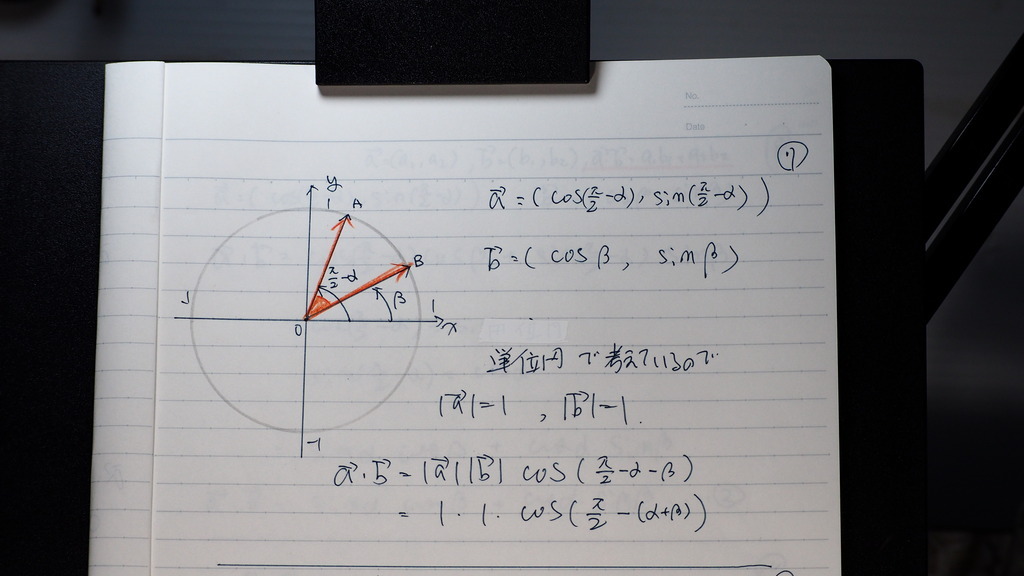 No.
Date
⑦
y
1
A
B
π/2-α
β
1
0
x
-1
a⃗=(cos(π/2-α), sin(π/2-α))
b⃗=(cosβ, sinβ)
単位円で考えているので
|a⃗|=1 , |b⃗|=1.
a⃗・b⃗=|a⃗||b⃗| cos(π/2-α-β)
= 1・1・cos(π/2-(α+β))